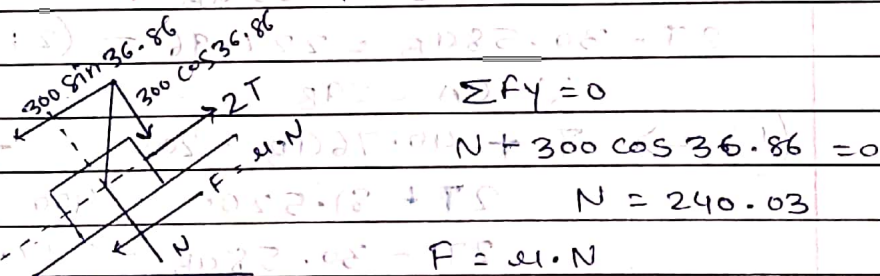 300 sin 36.86
300 cos 36.86
2T
F = μ.N
N
ΣFy = 0
N + 300 cos 36.86 = 0
N = 240.03
F = μ.N